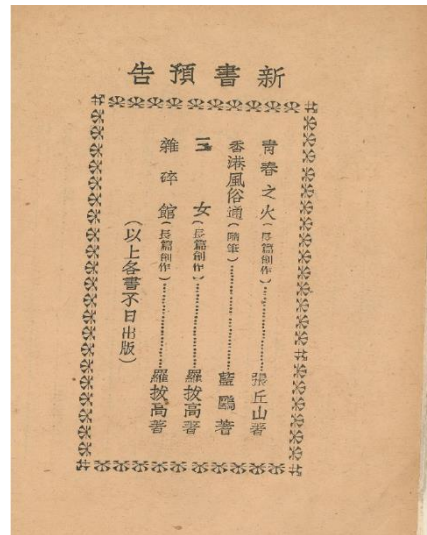 新書預告
青春之火(長篇創作)…………張丘山著
香港風俗通(隨筆)…………藍鷗著
三女(長篇創作)…………羅拔高著
雜碎館(長篇創作)…………羅拔高著
(以上各書不日出版)